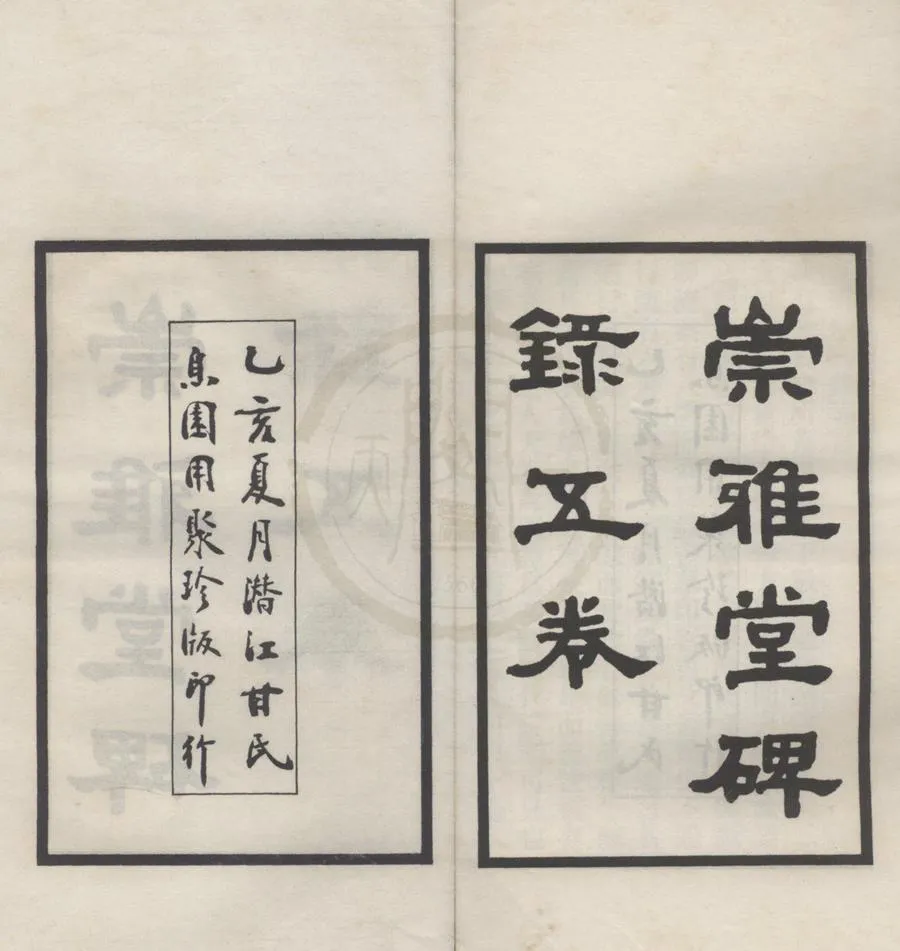 崇雅堂碑
錄五卷
乙亥夏月潛江甘氏
息園用聚珍版印行